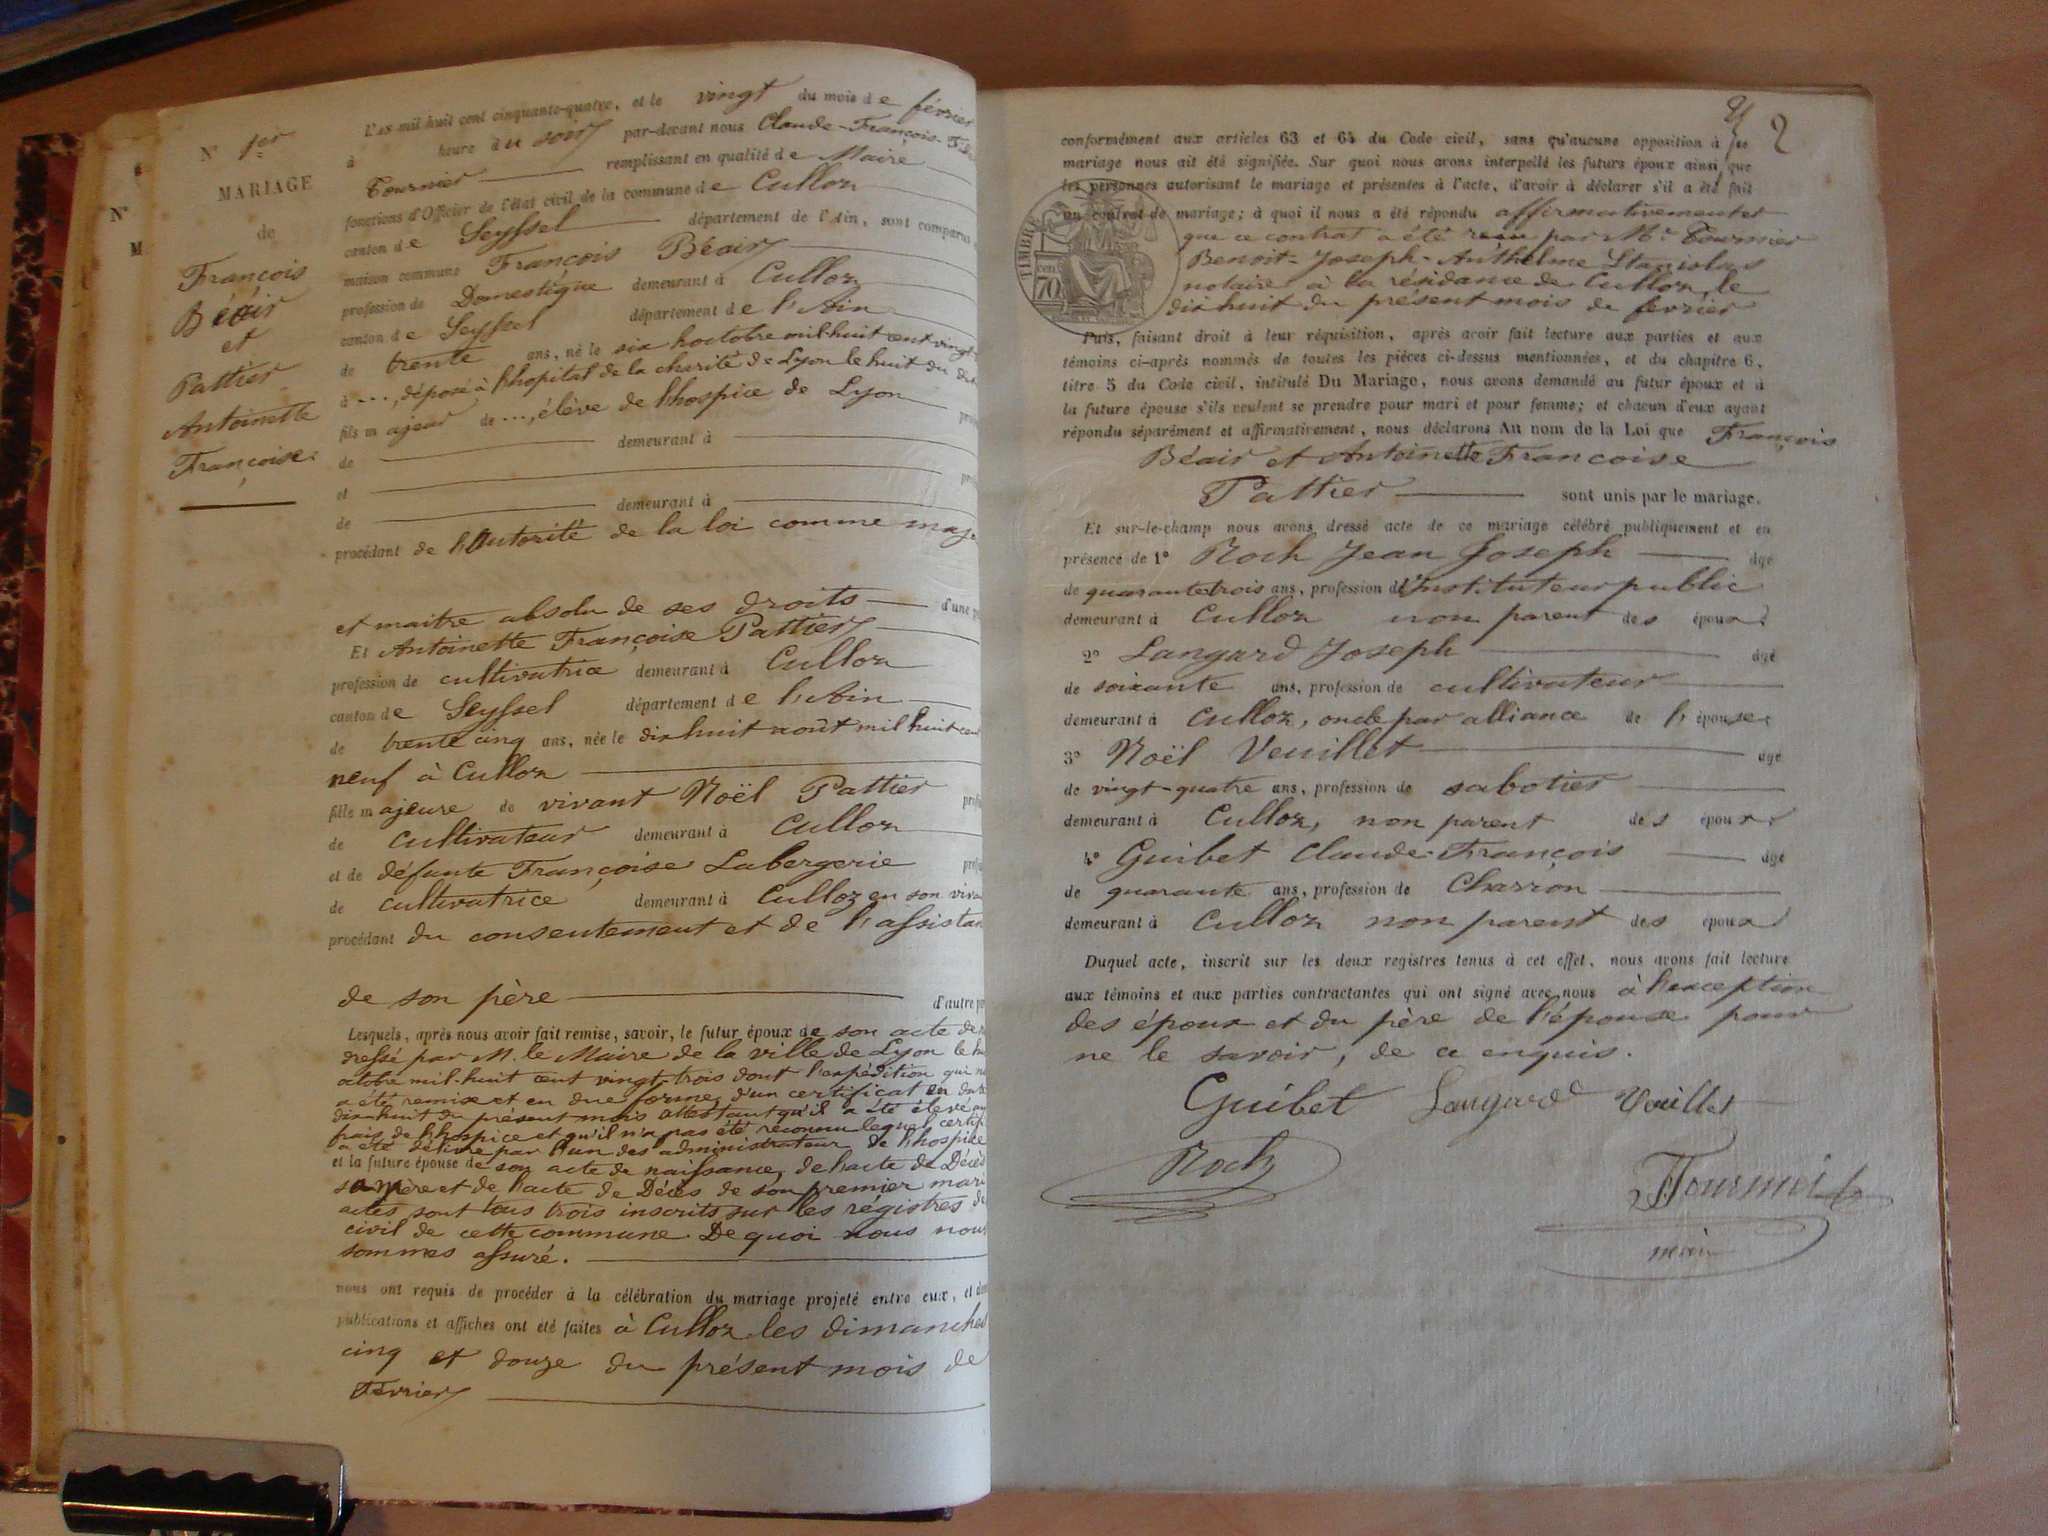 N° 1er
MARIAGE
de
François
Béair
et
Pattier
Antoinette
Françoise.
N°
M
L'AN mil huit cent cinquante-quatre, et le vingt du mois de février
à heure du soir par-devant nous Claude-François
Tournier remplissant en qualité de Maire
fonctions d'Officier de l'état civil de la commune de Culloz
canton de Seyssel département de l'Ain, sont comparus
maison commune François Béair
profession de Domestique demeurant à Culloz
canton de Seyssel département de l'Ain
de trente ans, né le six hoctobre mil huit cent vingt-
à ..., déposé à l'hopital de la charité de Lyon le huit du dit
fils majeur de ..., élève de l'hospice de Lyon
de demeurant à
et
de demeurant à
procédant de l'Autorité de la loi comme maj
et maitre absolu de ses droits d'une
Et Antoinette Françoise Pattier
profession de cultivatrice demeurant à Culloz
canton de Seyssel département de l'Ain
de trente cinq ans, née le dix huit août mil huit cent
neuf à Culloz
fille majeure de vivant Noël Pattier
de cultivateur demeurant à Culloz
et de défunte Françoise Labergerie
de cultivatrice demeurant à Culloz en son viva
procédant du consentement et de l'assistan
de son père d'autre
Lesquels, après nous avoir fait remise, savoir, le futur époux de son acte de
dressé par M. le Maire de la ville de Lyon le hu
octobre mil-huit cent vingt-trois dont l'expédition qui n
a été remise et en due forme, d'un certificat en date
dix-huit du présent mois attestant qu'il a été élevé au
frais de l'hospice et qu'il n'a pas été reconnu lequel certifi
a été délivré par l'un des administrateur de l'hospice
et la future épouse de son acte de naissance, de l'acte de Décès
sa mère et de l'acte de Décès de son premier mari
actes sont tous trois inscrits sur les régistres de
civil de cette commune. De quoi nous nous
sommes assuré.
nous ont requis de procéder à la célébration du mariage projeté entre eux, et dont
publications et affiches ont été faites à Culloz les dimanches
cinq et douze du présent mois de
Février
2
conformément aux articles 63 et 64 du Code civil, sans qu'aucune opposition à ce
mariage nous ait été signifiée. Sur quoi nous avons interpellé les futurs époux ainsi que
les personnes autorisant le mariage et présentes à l'acte, d'avoir à déclarer s'il a été fait
un contrat de mariage; à quoi il nous a été répondu affirmativement et
que ce contrat a été recu par Mr. Tournier
Benoit-Joseph-Anthelme Stanislas
notaire à la résidance de Culloz, le
dix huit du présent mois de fevrier
TIMBRE
70
Puis, faisant droit à leur réquisition, après avoir fait lecture aux parties et aux
témoins ci-après nommés de toutes les pièces ci-dessus mentionnées, et du chapitre 6,
titre 5 du Code civil, intitulé Du Mariage, nous avons demandé au futur époux et à
la future épouse s'ils veulent se prendre pour mari et pour femme; et chacun d'eux ayant
répondu séparément et affirmativement, nous déclarons Au nom de la Loi que François
Béair et Antoinette Françoise
Pattier sont unis par le mariage.
Et sur-le-champ nous avons dressé acte de ce mariage célébré publiquement et en
présence de 1° Roch Jean Joseph âgé
de quarante trois ans, profession d'Instituteur public
demeurant à Culloz non parent des époux
2° Langard Joseph âgé
de soixante ans, profession de cultivateur
demeurant à Culloz, oncle par alliance de l'épouse
3° Noël Veuillet âgé
de vingt-quatre ans, profession de sabotier
demeurant à Culloz, non parent des époux
4° Guibet Claude-François âgé
de quarante ans, profession de Charron
demeurant à Culloz non parent des époux
Duquel acte, inscrit sur les deux registres tenus à cet effet, nous avons fait lecture
aux témoins et aux parties contractantes qui ont signé avec nous à l'exception
des époux et du père de l'épouse pour
ne le savoir, de ce enquis.
Guibet Langard Veuillet
Roch
Tournier
maire